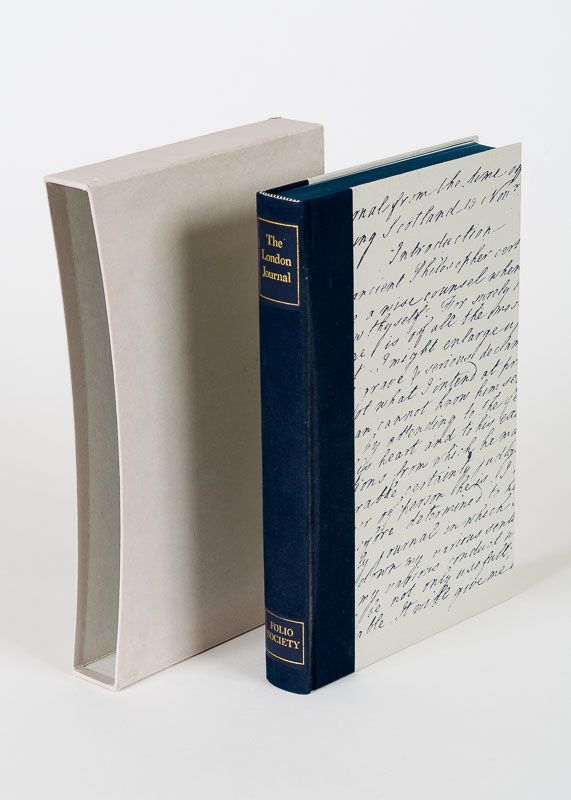 The
London
Journal
FOLIO
SOCIETY
from the time
Scotland 15 Nov
Introduction
ncient Philosopher cer
a wise counsel when
w thyself. For surely
is of all the mos
I might enlarge u
grave & serious declam
ot what I intend at pr
an cannot know himse
by attending to the
is heart and to his
ions from which he ma
rable certainty judg
er of person he is. I
fore determined to
ly journal in which
down my various sent
my various conduct
be not only usefull
able. It will give me